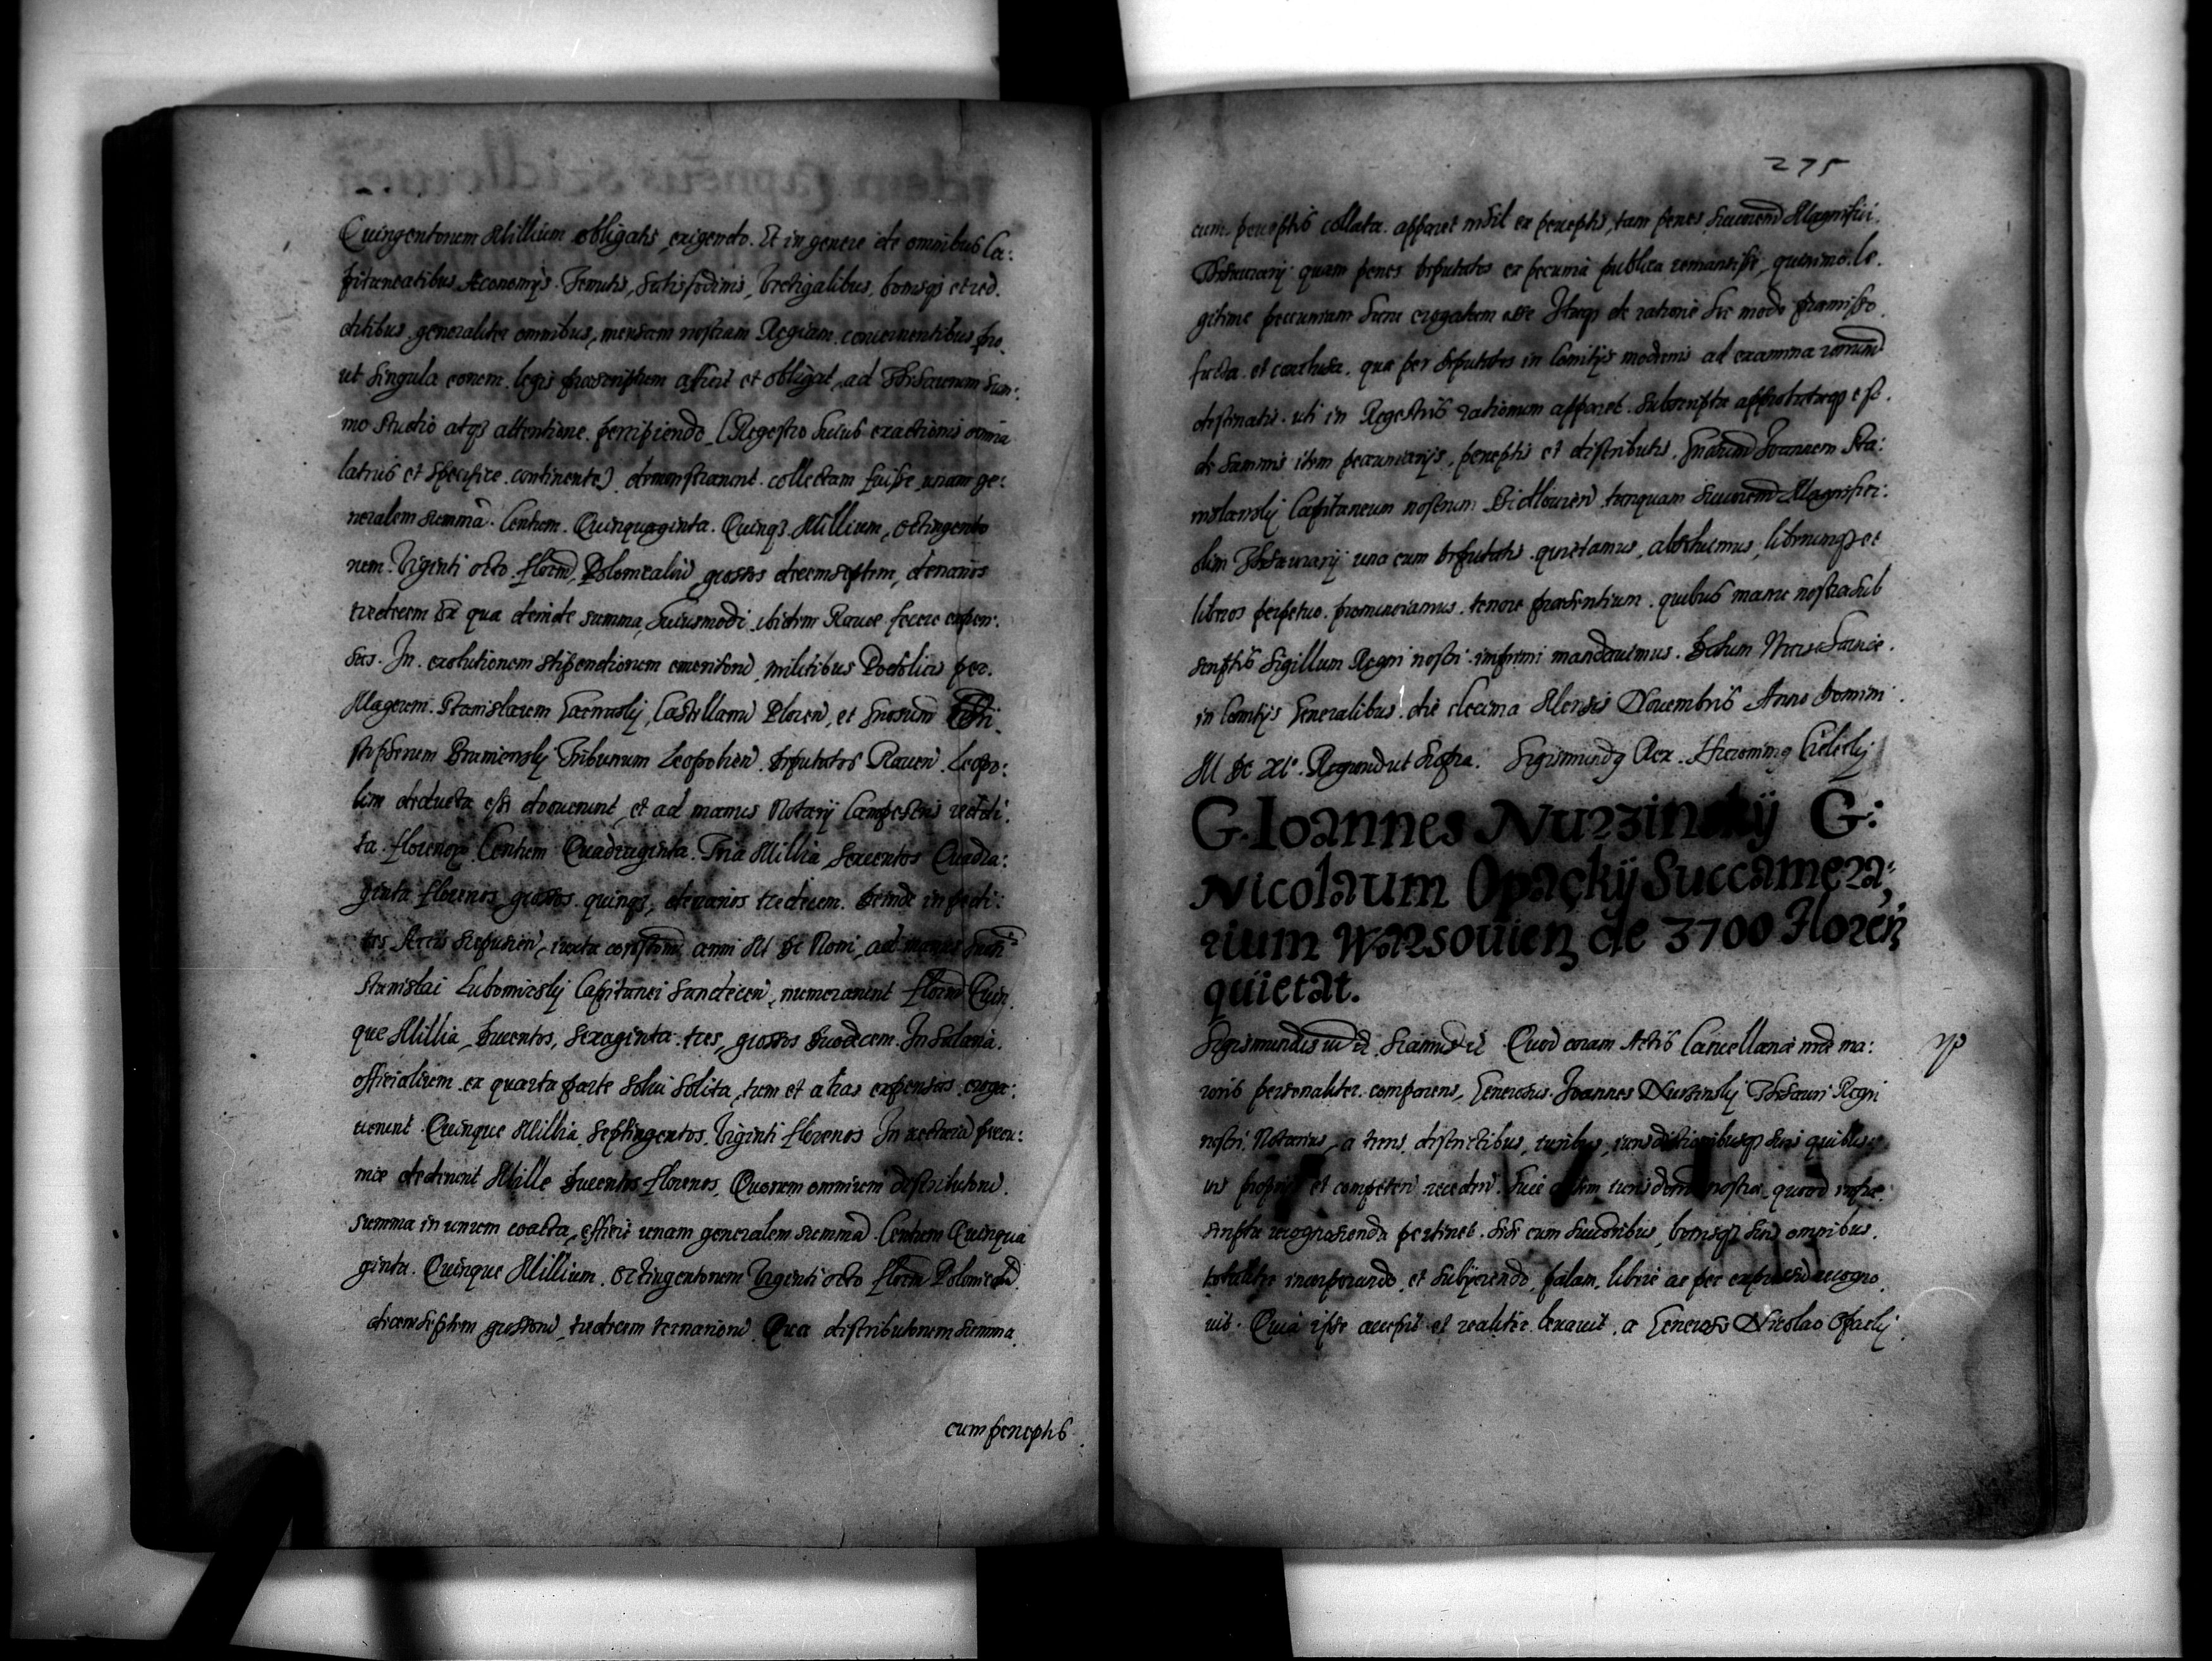 Quingentorum Millium obligatis, exigendo. Et in genere de omnibus Ca:
pitaneatibus, Aeconomijs, Tenutis, Salisfodinis, Vectigalibus, bonisqz et red.
ditibus generaliter omnibus, mensam nostram Regiam concernentibus, pro.
ut singula eorum legis praescriptum afficit et obligat, ad Thesaurum sum:
mo studio atqz attentione percipiendo, (Regestro huius exactionis omnia
latius et specifice continente) demonstrarunt collectam fuisse unam ge:
neralem summã Centum Quinquaginta Quinqz Millium, octingento
rum Viginti octo floren̄, Polonicaliũ, grossos decemseptem, denarios
tredecim Ex qua deinde summa, huiusmodi ibidem Rauae fecere expen:
sas. In exolutionem stipendiorum emeritorũ militibus Podoliae per
Magcum Stanislaum Castellanũ et Gnosum Chri.
stopherum Tribunum Leopolien̄ deputatos Rauen̄ Leopo:
lim deducta esse docuerunt, et ad manus Notarij Campestris reddi:
ta florenor̃ Centum Quadraginta Tria Millia Sexcentos Quadra:
ginta florenos grossos quinqz, denarios tredecim. Deinde in pedi:
tes Arcis Scepusien̄, iuxta constõnem anni M DC Noni, ad manus
Stanislai Lubomirskij Capitanei Sandecen̄, numerarunt floren̄ Quin
que Millia, Ducentos, sexaginta tres, grossos duodecem. In Salaria
officialium ex quarta parte solui solita, tum et alias expensas eroga:
uerunt Quinque Millia, Septingentos, Viginti florenos In vecturã pecu:
niae dederunt Mille Ducentos florenos, Quorum omnium distributorũ
summa in unum coacta, efficit unam generalem summã Centum Quinqua
ginta Quinque Millium Octingentorum Viginti octo floren̄ Polonicaliũ
decemseptem grossorũ, tredecim ternariorũ. Quae distributorum summa
cum perceptis
275
cum perceptis collata apparet nihil ex perceptis, tam penes Magnifici
Thesaurarij quam penes deputatos ex pecunia publica remansisse, quinimo le.
gitime pecuniam hanc erogatam esse Itaqz de ratione hoc modo praemisso
facta et conclusa, quae per deputatos in Comitijs modernis ad examina
destinatis uti in Regestris rationum apparet subscripta approbataqz est.
de summis item pecuniarijs, perceptis et distributis, Gnosum Joannem Sta:
nislawskij Capitaneum nostrum tanquam Magnifici
olim Thesaurarij una cum deputatis quietamus, absoluimus, liberumqz et
liberos perpetuo pronunciamus tenore praesentium quibus manu nostra sub
scriptis Sigillum Regni nostri imprimi mandauimus. Datum Varsauiae
in Comitijs Generalibus die decima Mensis Nouembris Anno Domini
M DC XI°. Regnorum ut supra. Sigismundq Rex. Hieronimq Cielecky
G. Ioannes Nurzinskÿ G:
Nicolaum Opackÿ Succamera,
rium Warsouien de 3700 Floren
quietat.
Sigismundus Quod coram Actis Cancellariae nrae ma:
ioris personaliter comparens, Generosus Joannes Nurzinskij Thesauri Regni
nostri Notarius, a terris, districtibus, iuribus, iurisdictionibusqz suis quibus
vis proprijs et competen̄ receden̄ suae autem iurisdõni nostrae quoad infra
scripta recognoscenda pertinet sese cum successoribus, bonisqz suis omnibus
totaliter incorporando et subijciendo, palam, libere ac per expressum recogno
uit. Quia ipse accepit et realiter leuauit a Generoso Nicolao Opackij